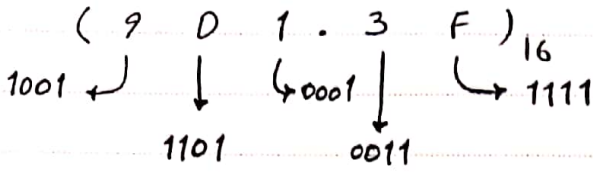 ( 9 D 1 . 3 F )16
1001 0001 1111
1101 0011